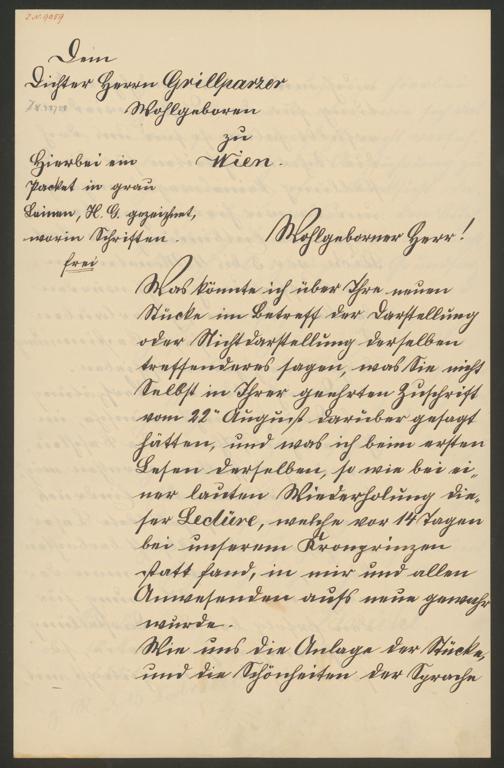 I.N. 9059
Dem
Dichter Herrn Grillparzer
Wohlgeboren
zu
Wien.
Hierbei ein
Packet in grau
Leinen, H. G. gezeichnet,
worin Schriften.
frei
Wohlgeborner Herr!
Was könnte ich über Ihre neuen
Stücke im Betreff der Darstellung
oder Nichtdarstellung derselben
treffenderes sagen, was Sie nicht
Selbst in Ihrer geehrten Zuschrift
vom 22n August darüber gesagt
hätten, und was ich beim ersten
Lesen derselben, so wie bei ei-
ner lauten Wiederholung die-
ser Lectüre, welche vor 14 Tagen
bei unserem Kronprinzen
statt fand, in mir und allen
Anwesenden aufs neue gewahr
wurde.
Wie uns die Anlage der Stücke,
und die Schönheiten der Sprache